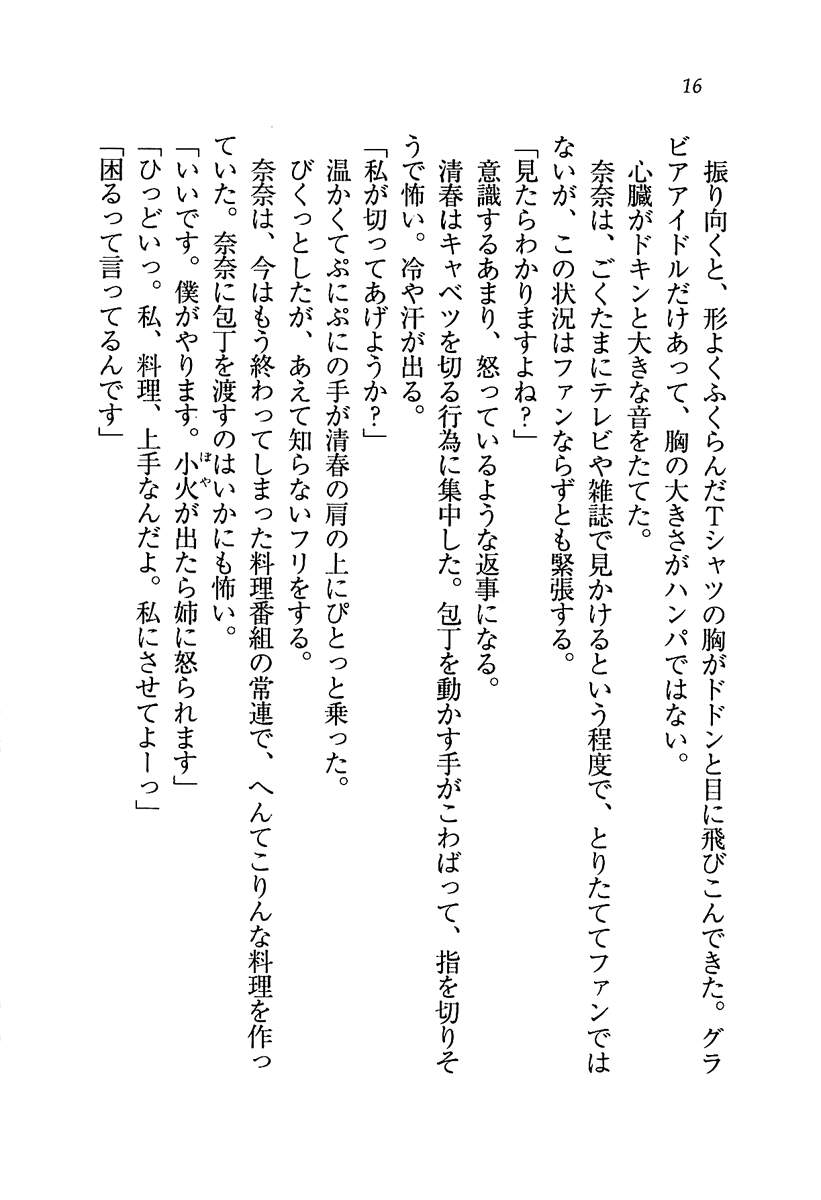 16
振り向くと、形よくふくらんだTシャツの胸がドドンと目に飛びこんできた。グラ
ビアアイドルだけあって、胸の大きさがハンパではない。
心臓がドキンと大きな音をたてた。
奈奈は、ごくたまにテレビや雑誌で見かけるという程度で、とりたててファンでは
ないが、この状況はファンならずとも緊張する。
「見たらわかりますよね?」
意識するあまり、怒っているような返事になる。
清春はキャベツを切る行為に集中した。包丁を動かす手がこわばって、指を切りそ
うで怖い。冷や汗が出る。
「私が切ってあげようか?」
温かくてぷにぷにの手が清春の肩の上にぴとっと乗った。
びくっとしたが、あえて知らないフリをする。
奈奈は、今はもう終わってしまった料理番組の常連で、へんてこりんな料理を作っ
ていた。奈奈に包丁を渡すのはいかにも怖い。
「いいです。僕がやります。小火が出たら姉に怒られます」
ぼや
「ひっどいっ。私、料理、上手なんだよ。私にさせてよーっ」
「困るって言ってるんです」